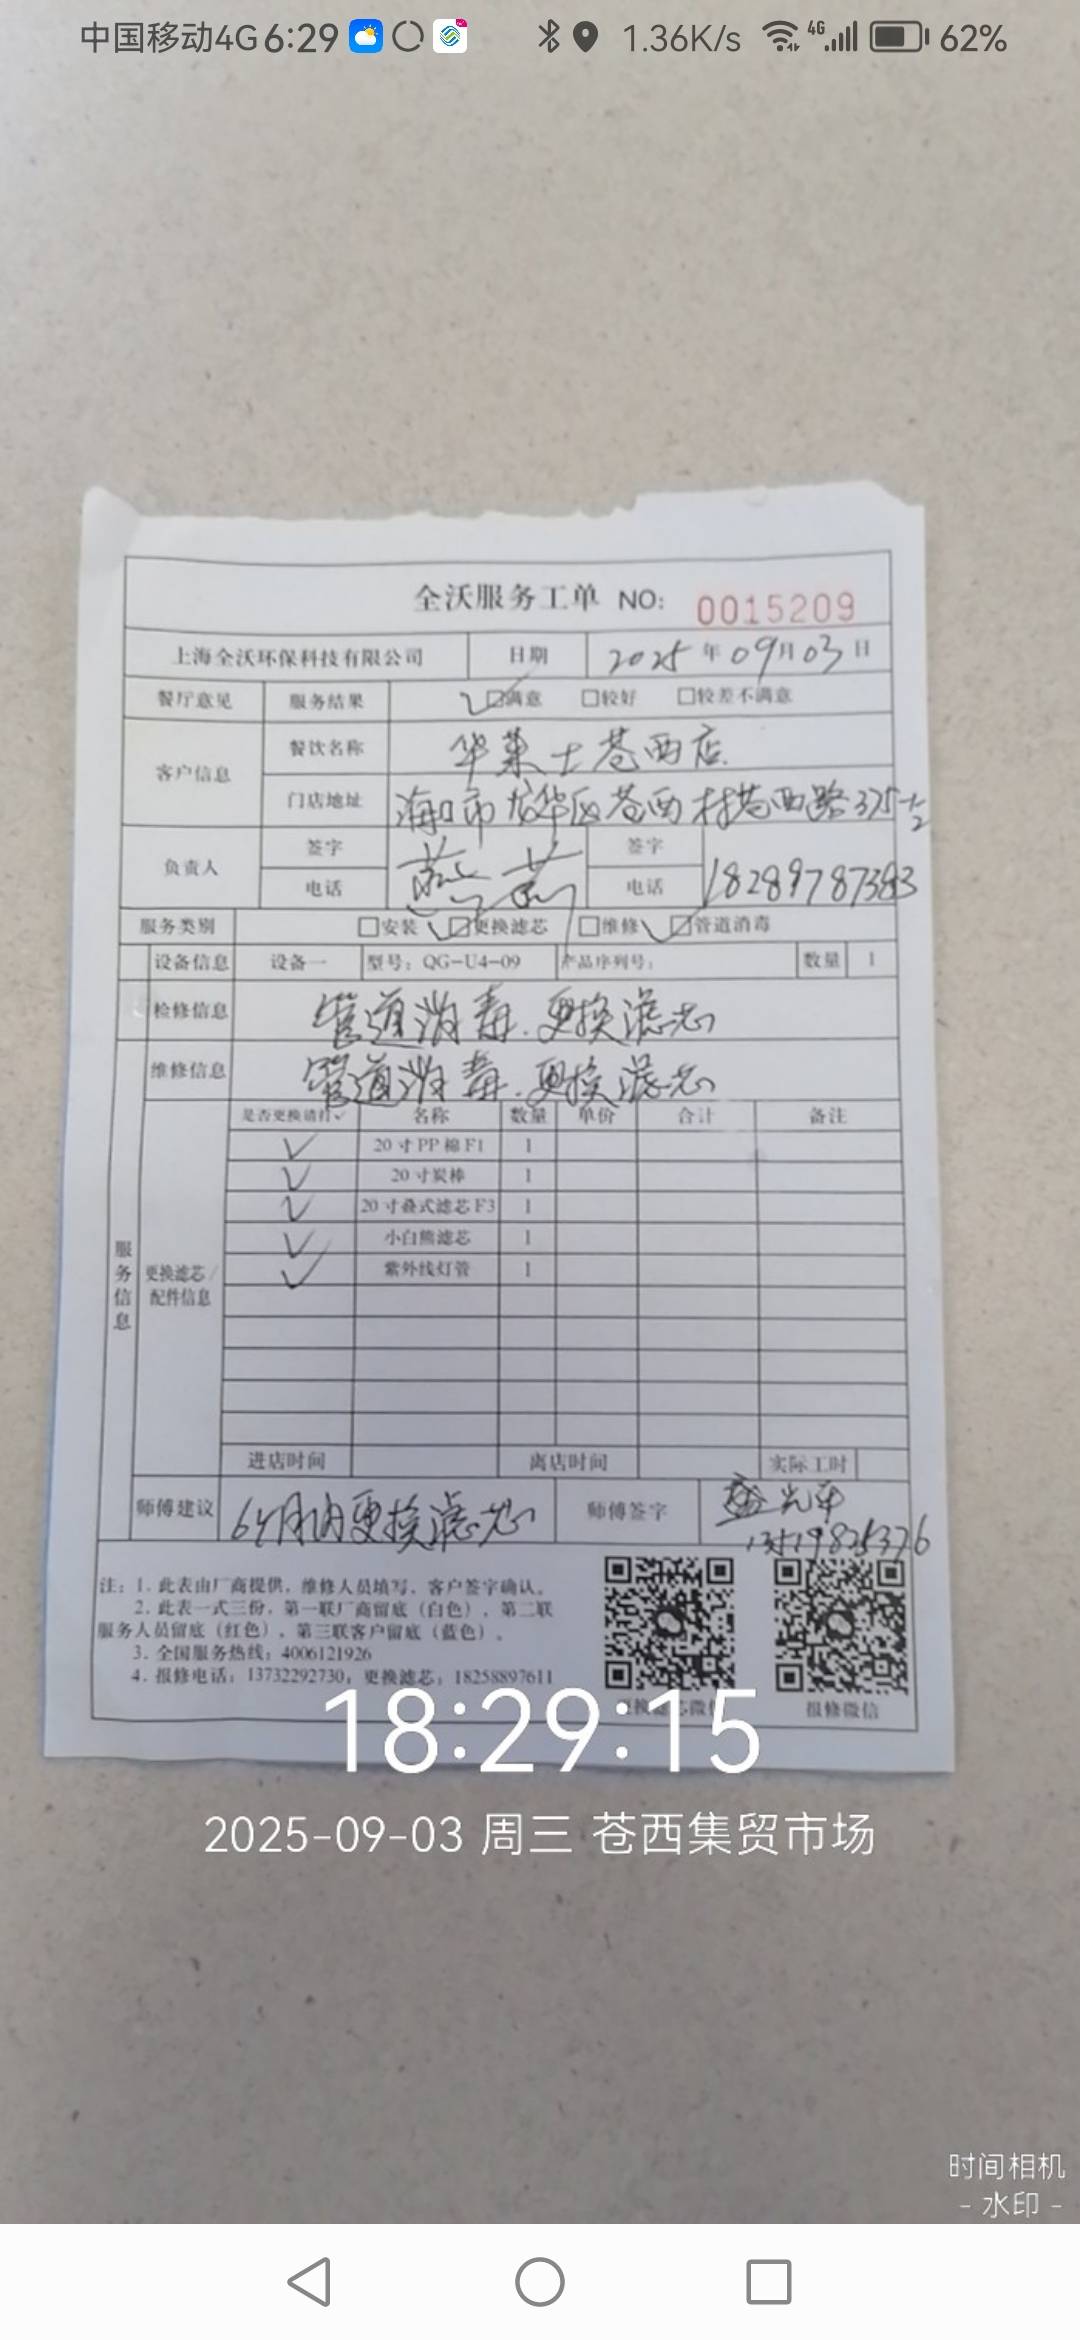 中国移动4G 6:29 1.36K/s 4G 62%
全沃服务工单 NO: 0015209
上海全沃环保科技有限公司 日期 2025年09月03日
餐厅意见 服务结果 ☑满意 □较好 □较差不满意
客户信息 餐饮名称 华莱士苍西店
门店地址 海口市龙华区苍西村苍西路375-2
负责人 签字 签字
电话 电话 18289787383
服务类别 □安装 ☑更换滤芯 □维修 ☑管道消毒
设备信息 设备一 型号：QG-U4-09 产品序列号： 数量 1
检修信息 管道消毒.更换滤芯
维修信息 管道消毒.更换滤芯
是否更换请打✓ 名称 数量 单价 合计 备注
✓ 20寸PP棉F1 1
✓ 20寸炭棒 1
✓ 20寸叠式滤芯F3 1
✓ 小白熊滤芯 1
✓ 紫外线灯管 1
服务信息
更换滤芯/
配件信息
进店时间 离店时间 实际工时
师傅建议 6个月内更换滤芯 师傅签字
注：1. 此表由厂商提供，维修人员填写，客户签字确认。
2. 此表一式三份，第一联厂商留底（白色），第二联
服务人员留底（红色），第三联客户留底（蓝色）。
3. 全国服务热线：4006121926
4. 报修电话：13732292730，更换滤芯：18258897611
报修微信
18:29:15
2025-09-03 周三 苍西集贸市场
时间相机
- 水印 -